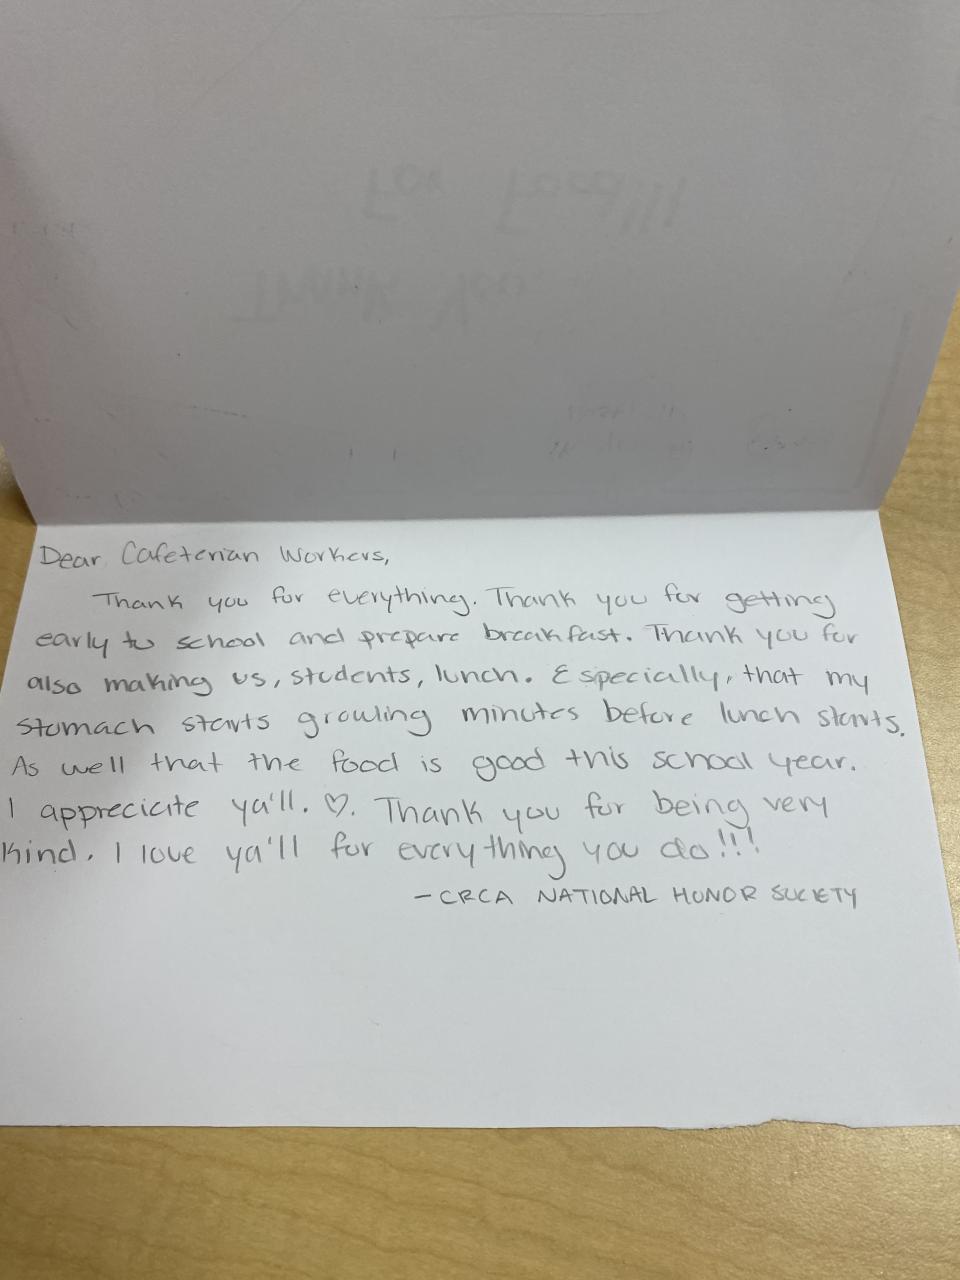 Thank You
For Food!!!
Dear Cafeterian Workers,
Thank you for everything. Thank you for getting
early to school and prepare breakfast. Thank you for
also making us, students, lunch. Especially, that my
stomach starts growling minutes before lunch starts.
As well that the food is good this school year.
I appreciate ya'll. ♡. Thank you for being very
kind. I love ya'll for everything you do!!!
- CRCA NATIONAL HONOR SOCIETY